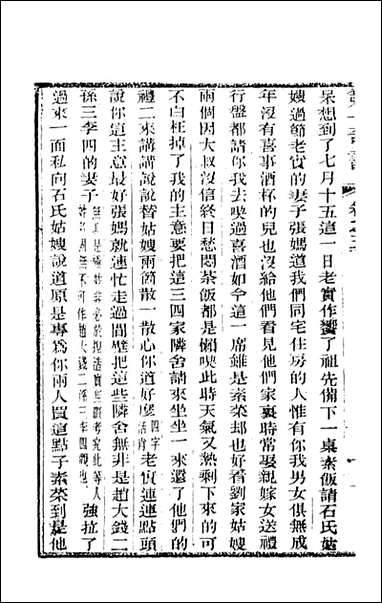 呆想到了七月十五這一日老實作饗了祖先備下一桌素飯請石氏姑
嫂過節老實的妻子張媽道我們同宅住房的人惟有你我男女俱無成
年沒有喜事酒杯的兒也沒給他們看見他們家裏時常娶親嫁女送禮
行盤都請你我去喫過喜酒如今這一席雖是素菜却也好看劉家姑嫂
兩個因大叔沒信終日愁悶茶飯都是懶喫此時天氣又熱剩下來的可
不白枉掉了我的主意要把這三四家隣舍請來坐坐一來還了他們的
禮二來講講說說替姑嫂兩箇散一散心你道好麼四字活肖老實連連點頭
說你這主意最好張媽就連忙走過間壁把這些隣舍無非是趙大錢二
孫三李四的妻子強拉了
過來一面私向石氏姑嫂說道原是專為你兩人買這點子素菜到是他